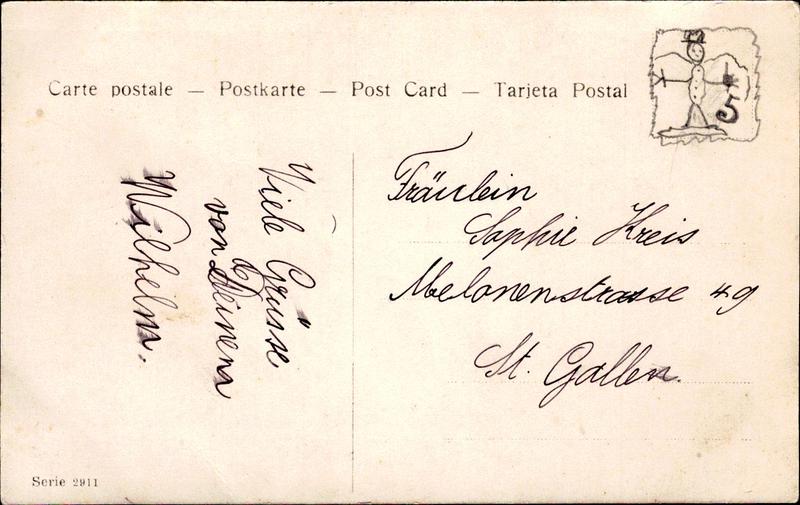 Carte postale — Postkarte — Post Card — Tarjeta Postal
5
Viele Grüsse
von Deinem
Wilhelm.
Fräulein
Sophie Kreis
Melonenstrasse 49
St. Gallen.
Serie 2911